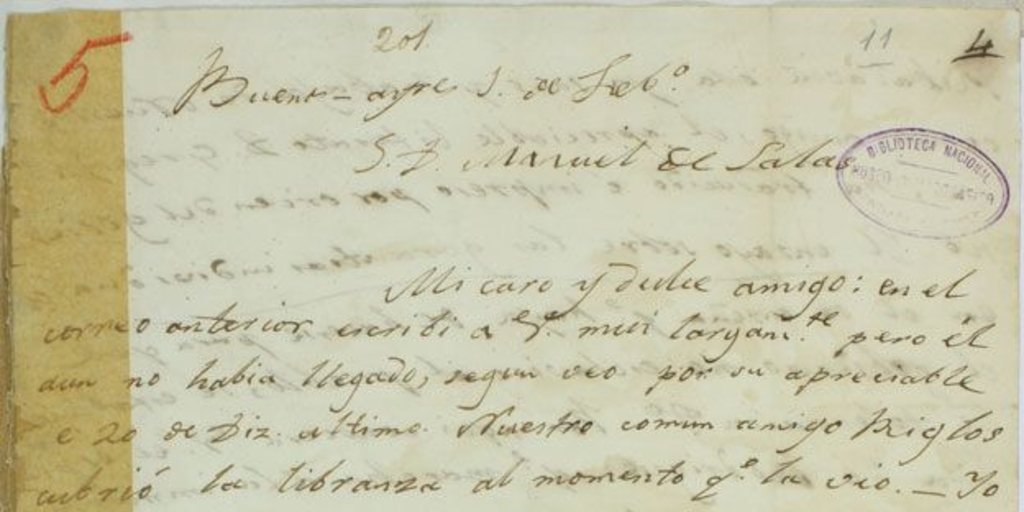 5 201 11 4
Buenos-ayres 1. de Feb.º
S. D. Manuel de Salas
BIBLIOTECA NACIONAL
Mi caro y dulce amigo: en el
correo anterior escribi a V. mui largam.te pero él
aun no habia llegado, segun veo por su apreciable
e 20 de Diz. ultimo. Nuestro comun amigo Riglos
cubrió la libranza al momento q.e la vio. — Yo